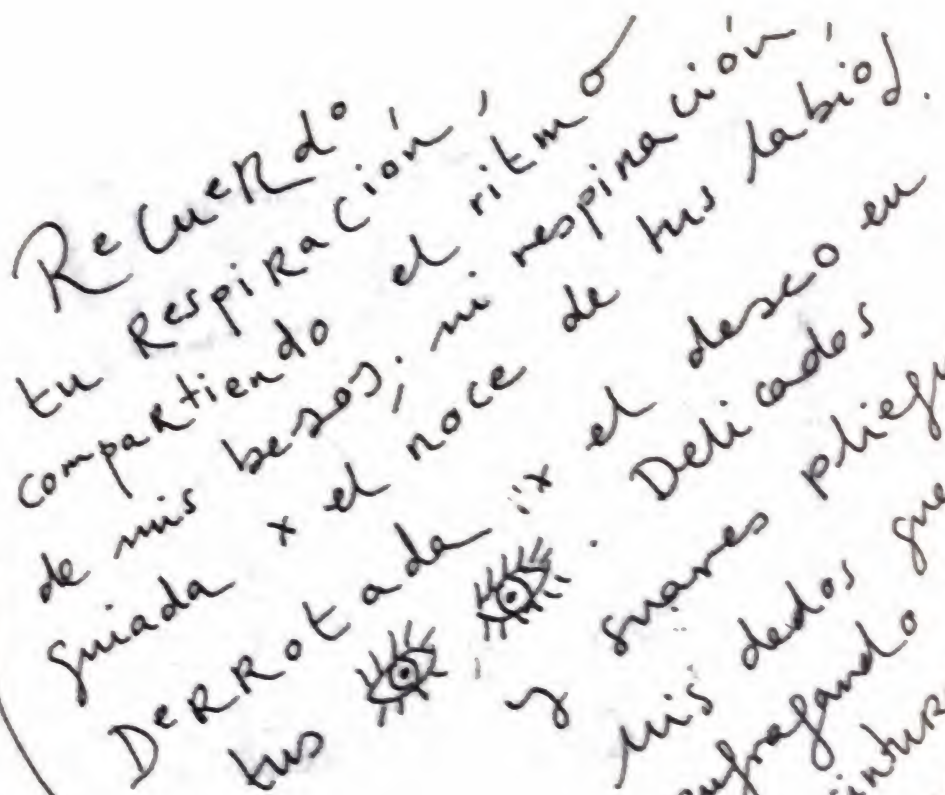 Recuerdo
tu Respiración,
compartiendo el ritmo
de mis besos; mi respiración,
guiada x el roce de tus labios.
Derrotada x el deseo en
tus . Delicados
y suaves
mis dedos